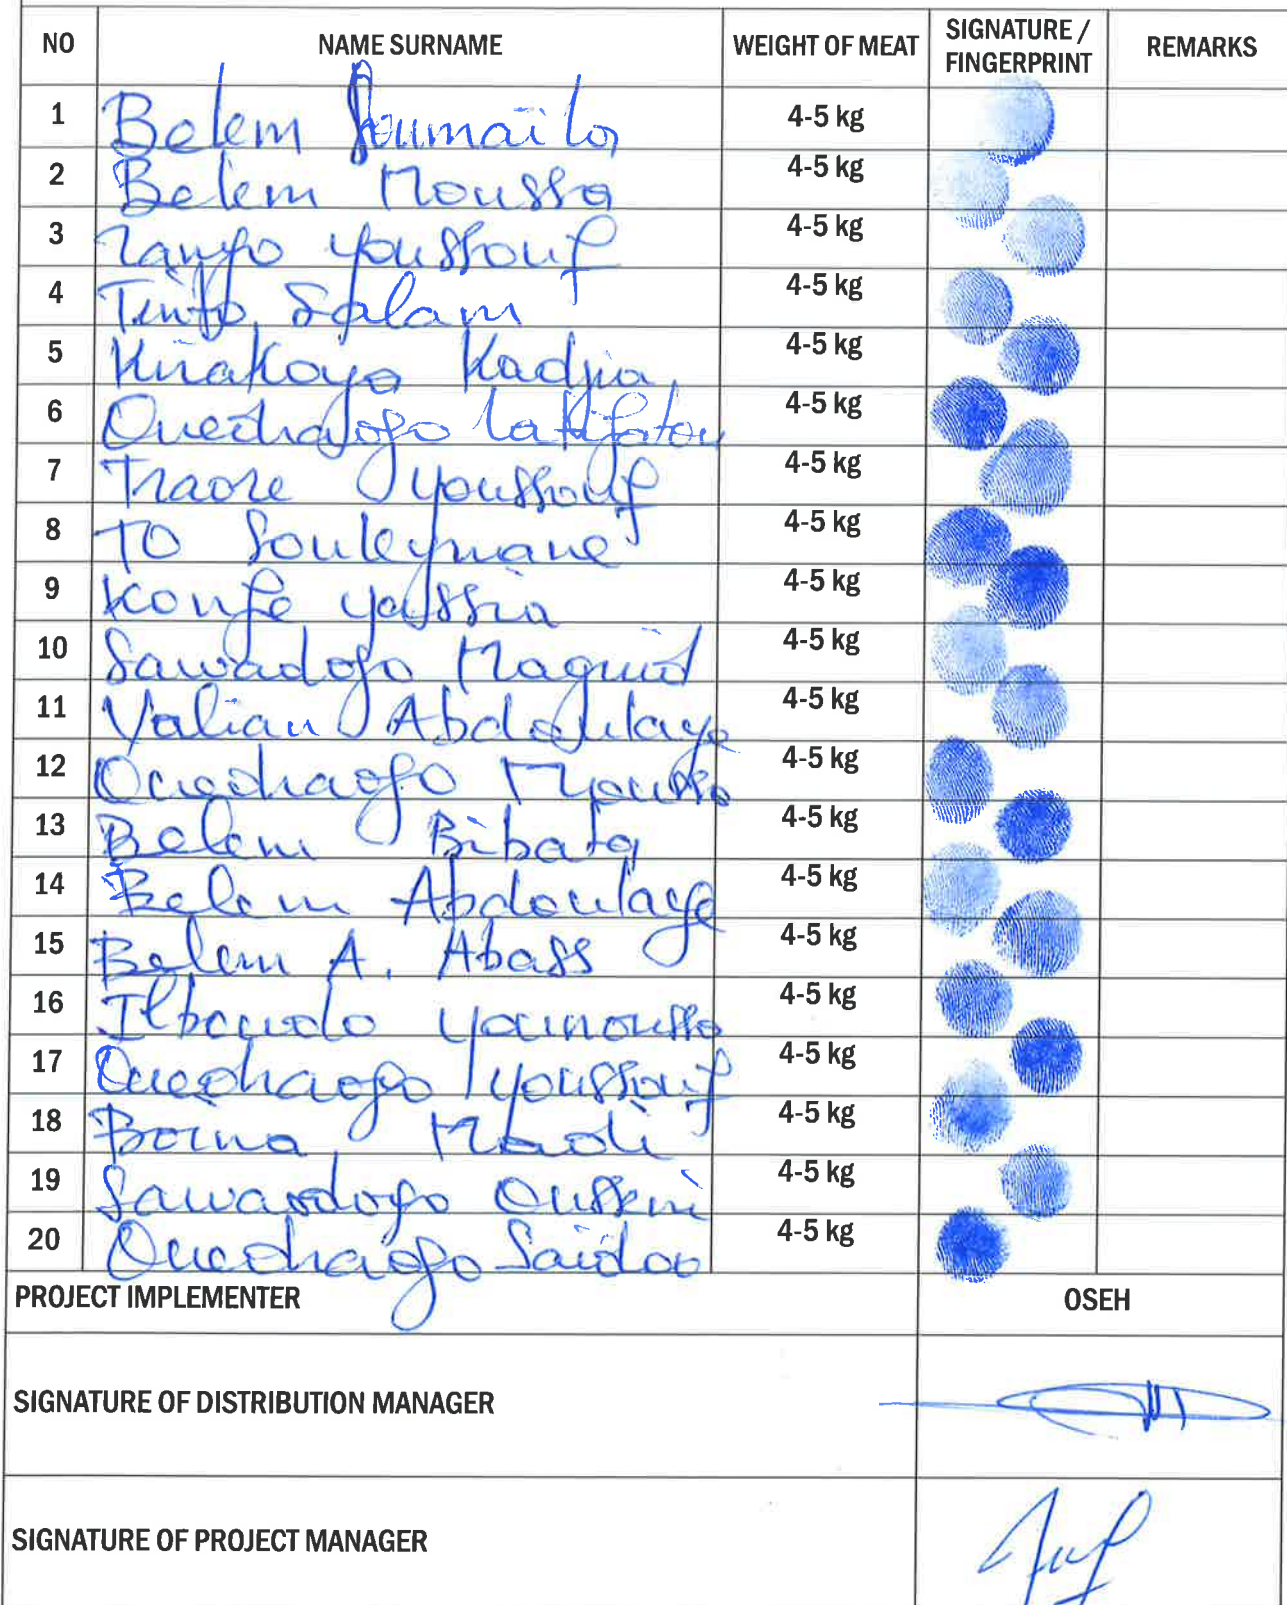 NO NAME SURNAME WEIGHT OF MEAT SIGNATURE / FINGERPRINT REMARKS
1 Belem Soumaïla 4-5 kg
2 Belem Moussa 4-5 kg
3 Zango Youssouf 4-5 kg
4 Tinto Salam 4-5 kg
5 Kirakoya Kadjia 4-5 kg
6 Ouedraogo 4-5 kg
7 Traore Youssouf 4-5 kg
8 TO Souleymane 4-5 kg
9 Konfe Yassia 4-5 kg
10 Sawadogo 4-5 kg
11 Valian Abdoulaye 4-5 kg
12 Ouedraogo Moussa 4-5 kg
13 Belem Bibata 4-5 kg
14 Belem Abdoulaye 4-5 kg
15 Belem A. Abass 4-5 kg
16 Ilboudo Younoussa 4-5 kg
17 Ouedraogo Youssouf 4-5 kg
18 Boina Madi 4-5 kg
19 Sawardogo Ousseni 4-5 kg
20 Ouedraogo Saïdou 4-5 kg
PROJECT IMPLEMENTER OSEH
SIGNATURE OF DISTRIBUTION MANAGER
SIGNATURE OF PROJECT MANAGER